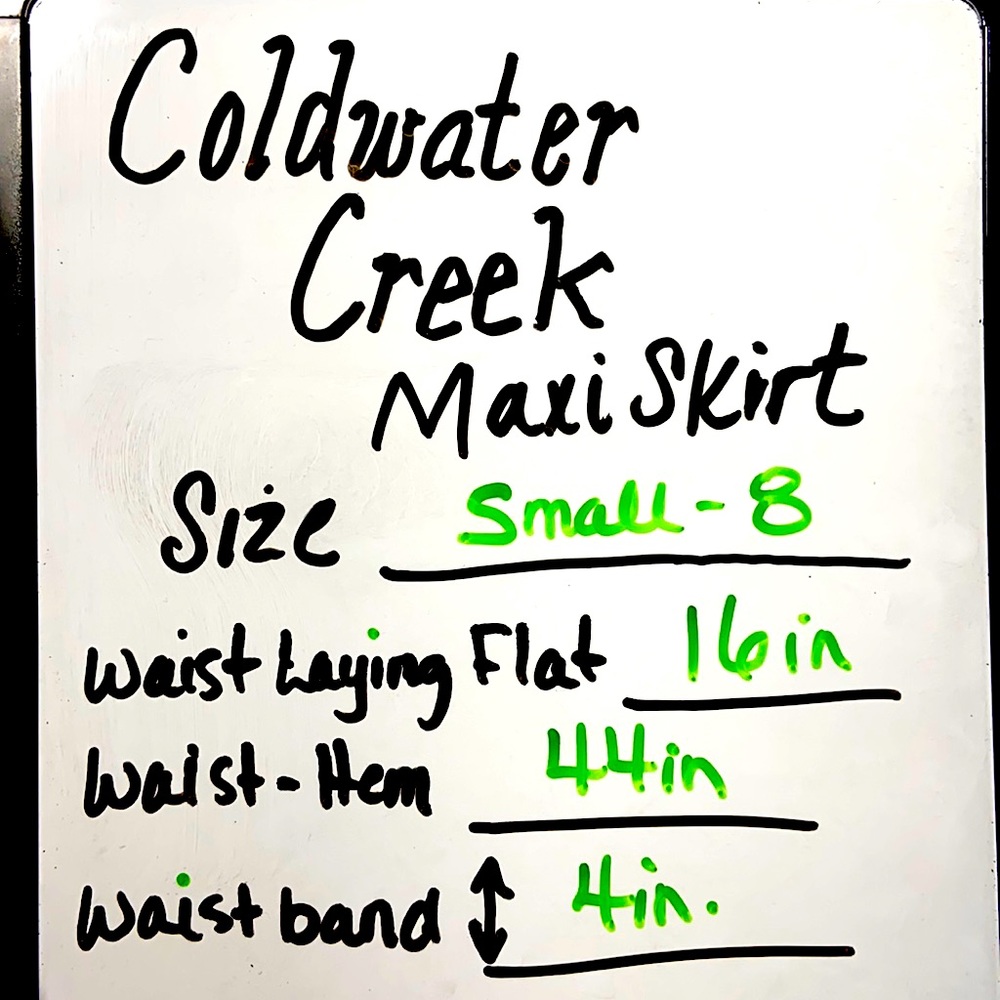 Coldwater
Creek
Maxi Skirt
Size Small - 8
Waist Laying Flat 16in
Waist - Hem 44in
Waist band ↕ 4in.